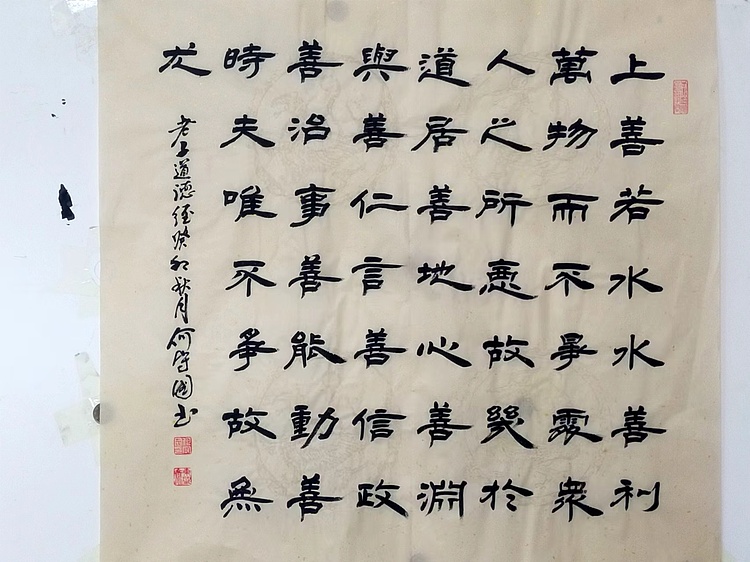 上善若水水善利
萬物而不爭處衆
人之所惡故幾於
道居善地心善淵
與善仁言善信政
善治事善能動善
時夫唯不爭故無
尤
老子道德經癸卯秋月何國书